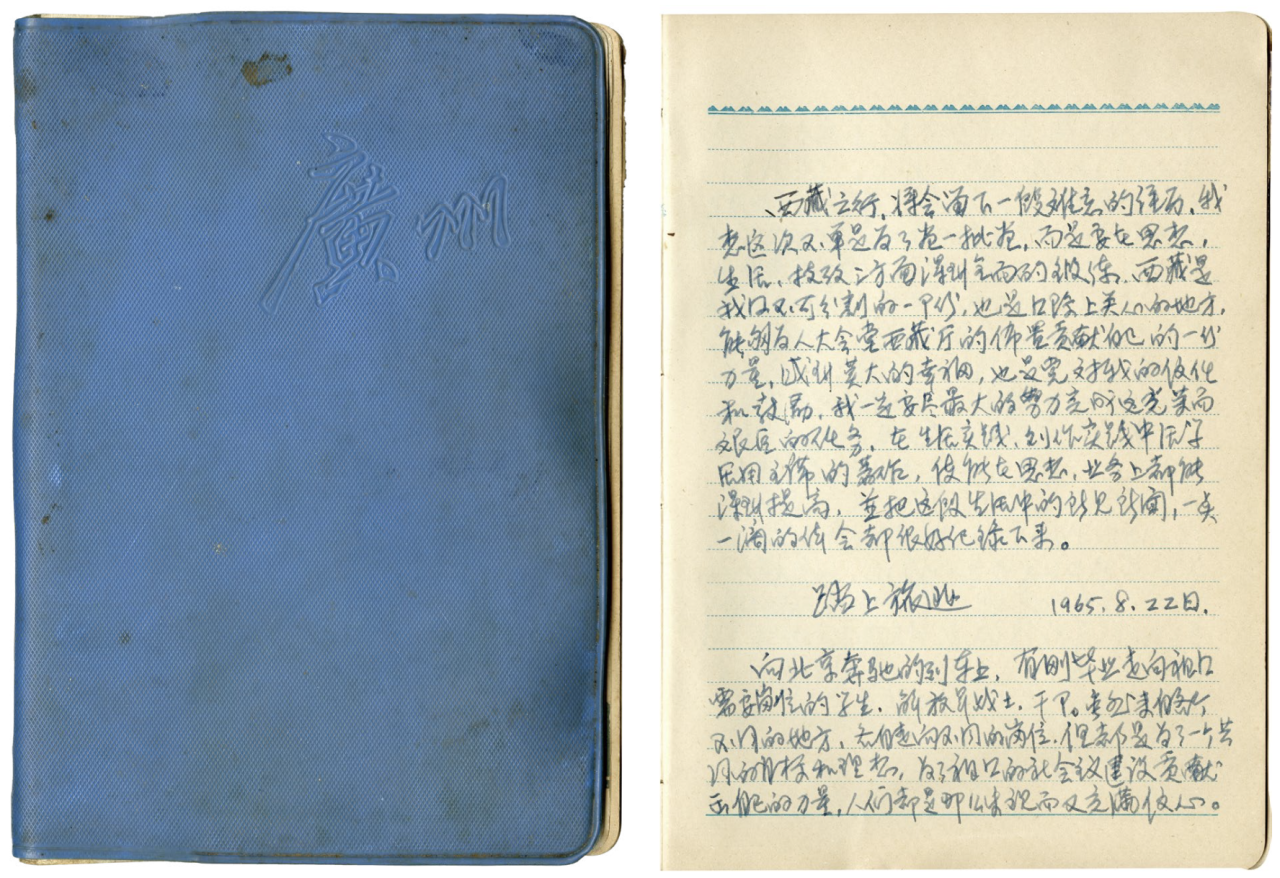 廣州
西藏之行,将会留下一段难忘的经历,我
想这次不单是为了卷一批卷,而是要在思想,
生活、技改三方面得到全面的锻炼,西藏是
我国不可分割的一部份,也是国际上关心的地方,
能够为人大会堂西藏厅的佈置贡献自己的一份
力量,感到莫大的幸福,也是党对我的信任
和鼓励,我一定要尽最大的努力完成这光荣而
艰巨的任务,在生活实践,创作实践中活学
活用主席的著作,使能在思想,业务上都能
得到提高,並把这段生活中的所见所闻,一点
一滴的体会都很好纪錄下来。
踏上旅途 1965.8.22日.
向北京奔驰的列车上,有刚毕业走向祖国
需要岗位的学生,解放军战士,干部。
不同的地方,走向不同的岗位,但都是为了一个共
同的目标和理想,为了祖国的社会主义建设贡献
自己的力量,人们都是那么乐观而又充满信心。